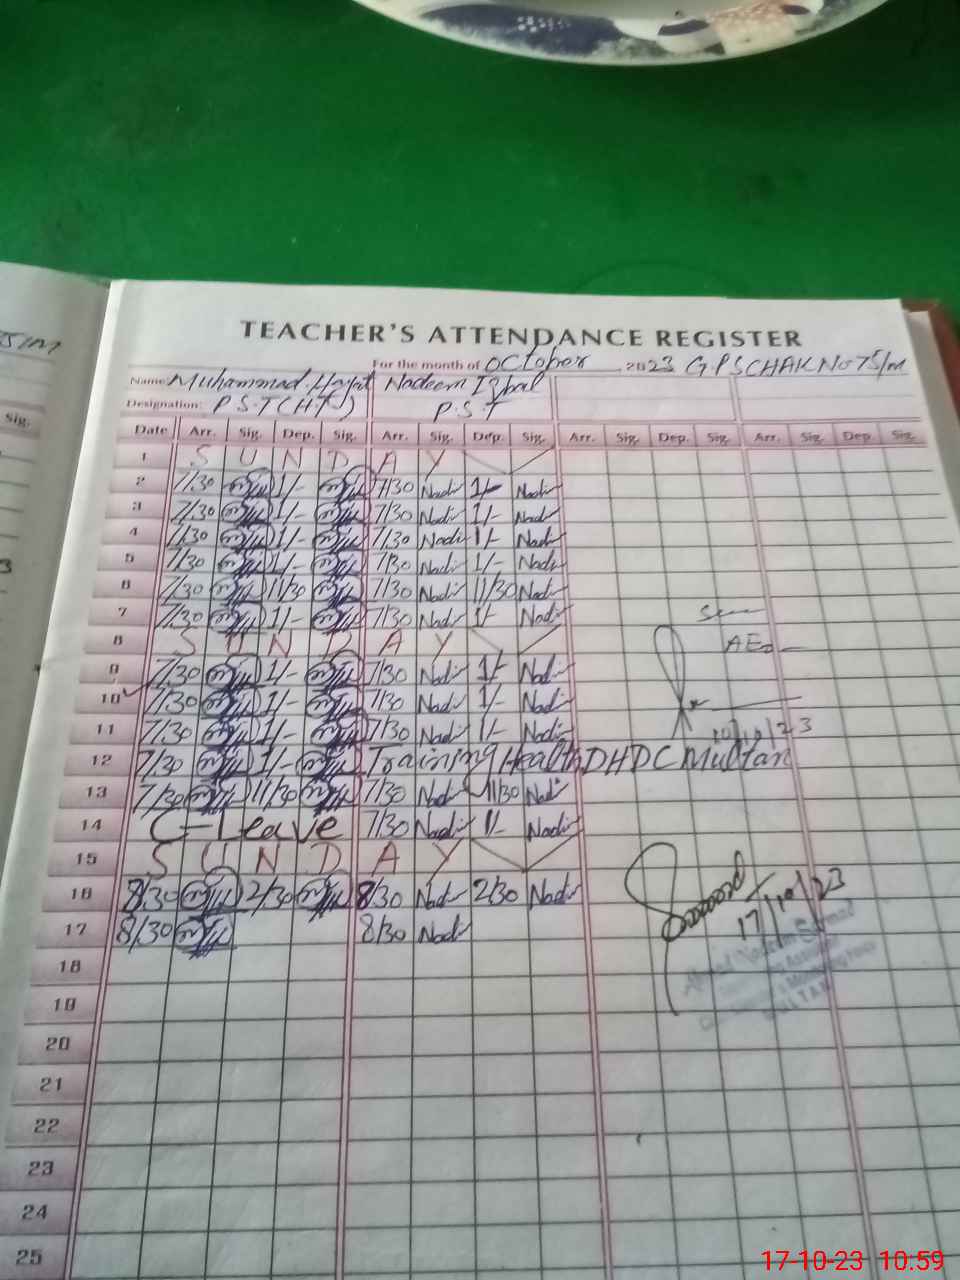 75/M
TEACHER'S ATTENDANCE REGISTER
For the month of October 2023 G.P.S CHAK No 75/m
Name: Muhammad Hayat Nadeem Iqbal
Designation: P.S.T (H.T) P.S.T
Sig.
Date Arr. Sig. Dep. Sig. Arr. Sig. Dep. Sig. Arr. Sig. Dep. Sig. Arr. Sig. Dep. Sig.
1 S U N D A Y
2 7/30 1/- 7/30 Nadi 1/- Nadi
3 7/30 1/- 7/30 Nadi 1/- Nadi
4 7/30 1/- 7/30 Nadi 1/- Nadi
5 7/30 1/- 7/30 Nadi 1/- Nadi
6 7/30 11/30 7/30 Nadi 11/30 Nadi
7 7/30 1/- 7/30 Nadi 1/- Nadi
8 S U N D A Y
AEO
9 7/30 1/- 7/30 Nadi 1/- Nadi
10 7/30 1/- 7/30 Nadi 1/- Nadi
11 7/30 1/- 7/30 Nadi 1/- Nadi 10/10/23
12 7/30 1/- Training Health DHDC Multan
13 7/30 11/30 7/30 Nadi 11/30 Nadi
14 C-Leave 7/30 Nadi 1/- Nadi
15 S U N D A Y
16 8/30 2/30 8/30 Nadi 2/30 Nadi
17/10/23
17 8/30 8/30 Nadi
18
19
20
21
22
23
24
25
17-10-23 10:59